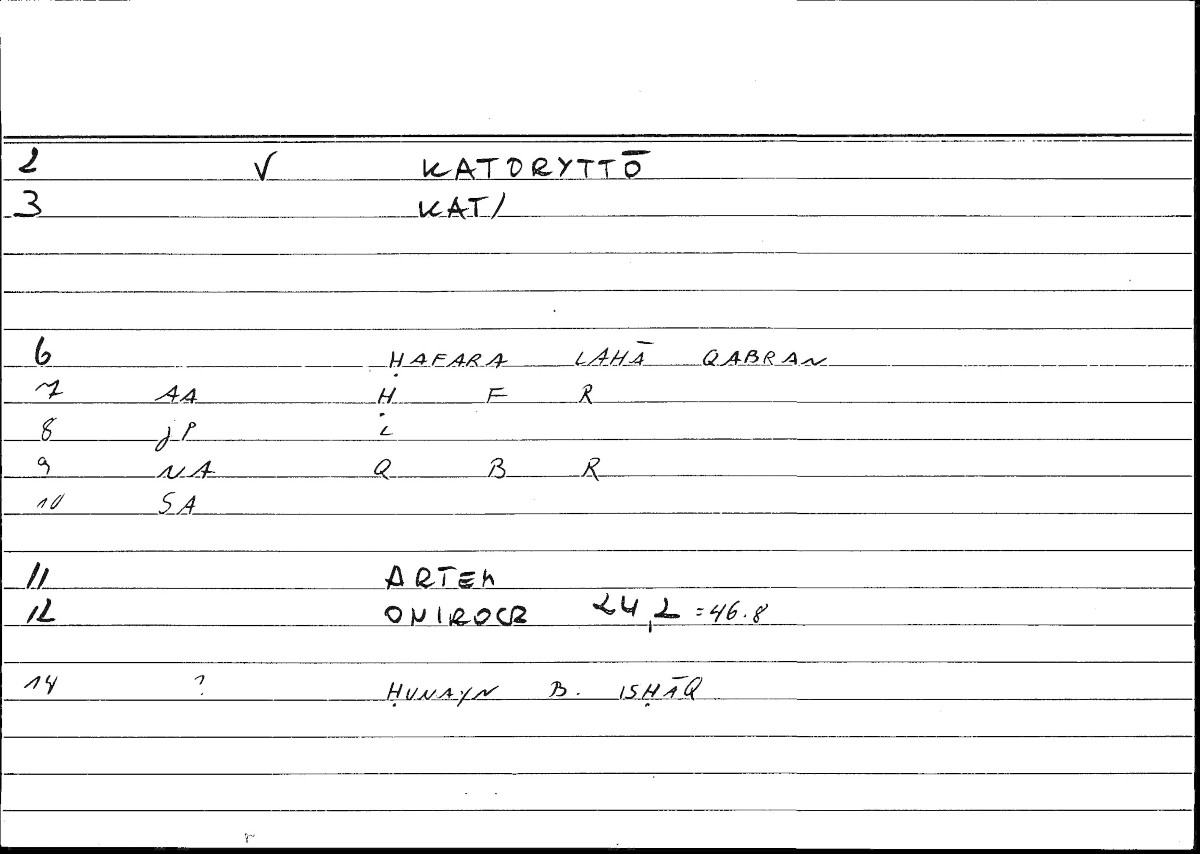 2 √ KATORYTTŌ
3 KAT/
6 ḤAFARA LAHĀ QABRAN
7 AA Ḥ F R
8 JP L
9 NA Q B R
10 SA
11 ARTEM
12 ONIROCR 24,2 =46.8
14 ? ḤUNAYN B. ISḤĀQ